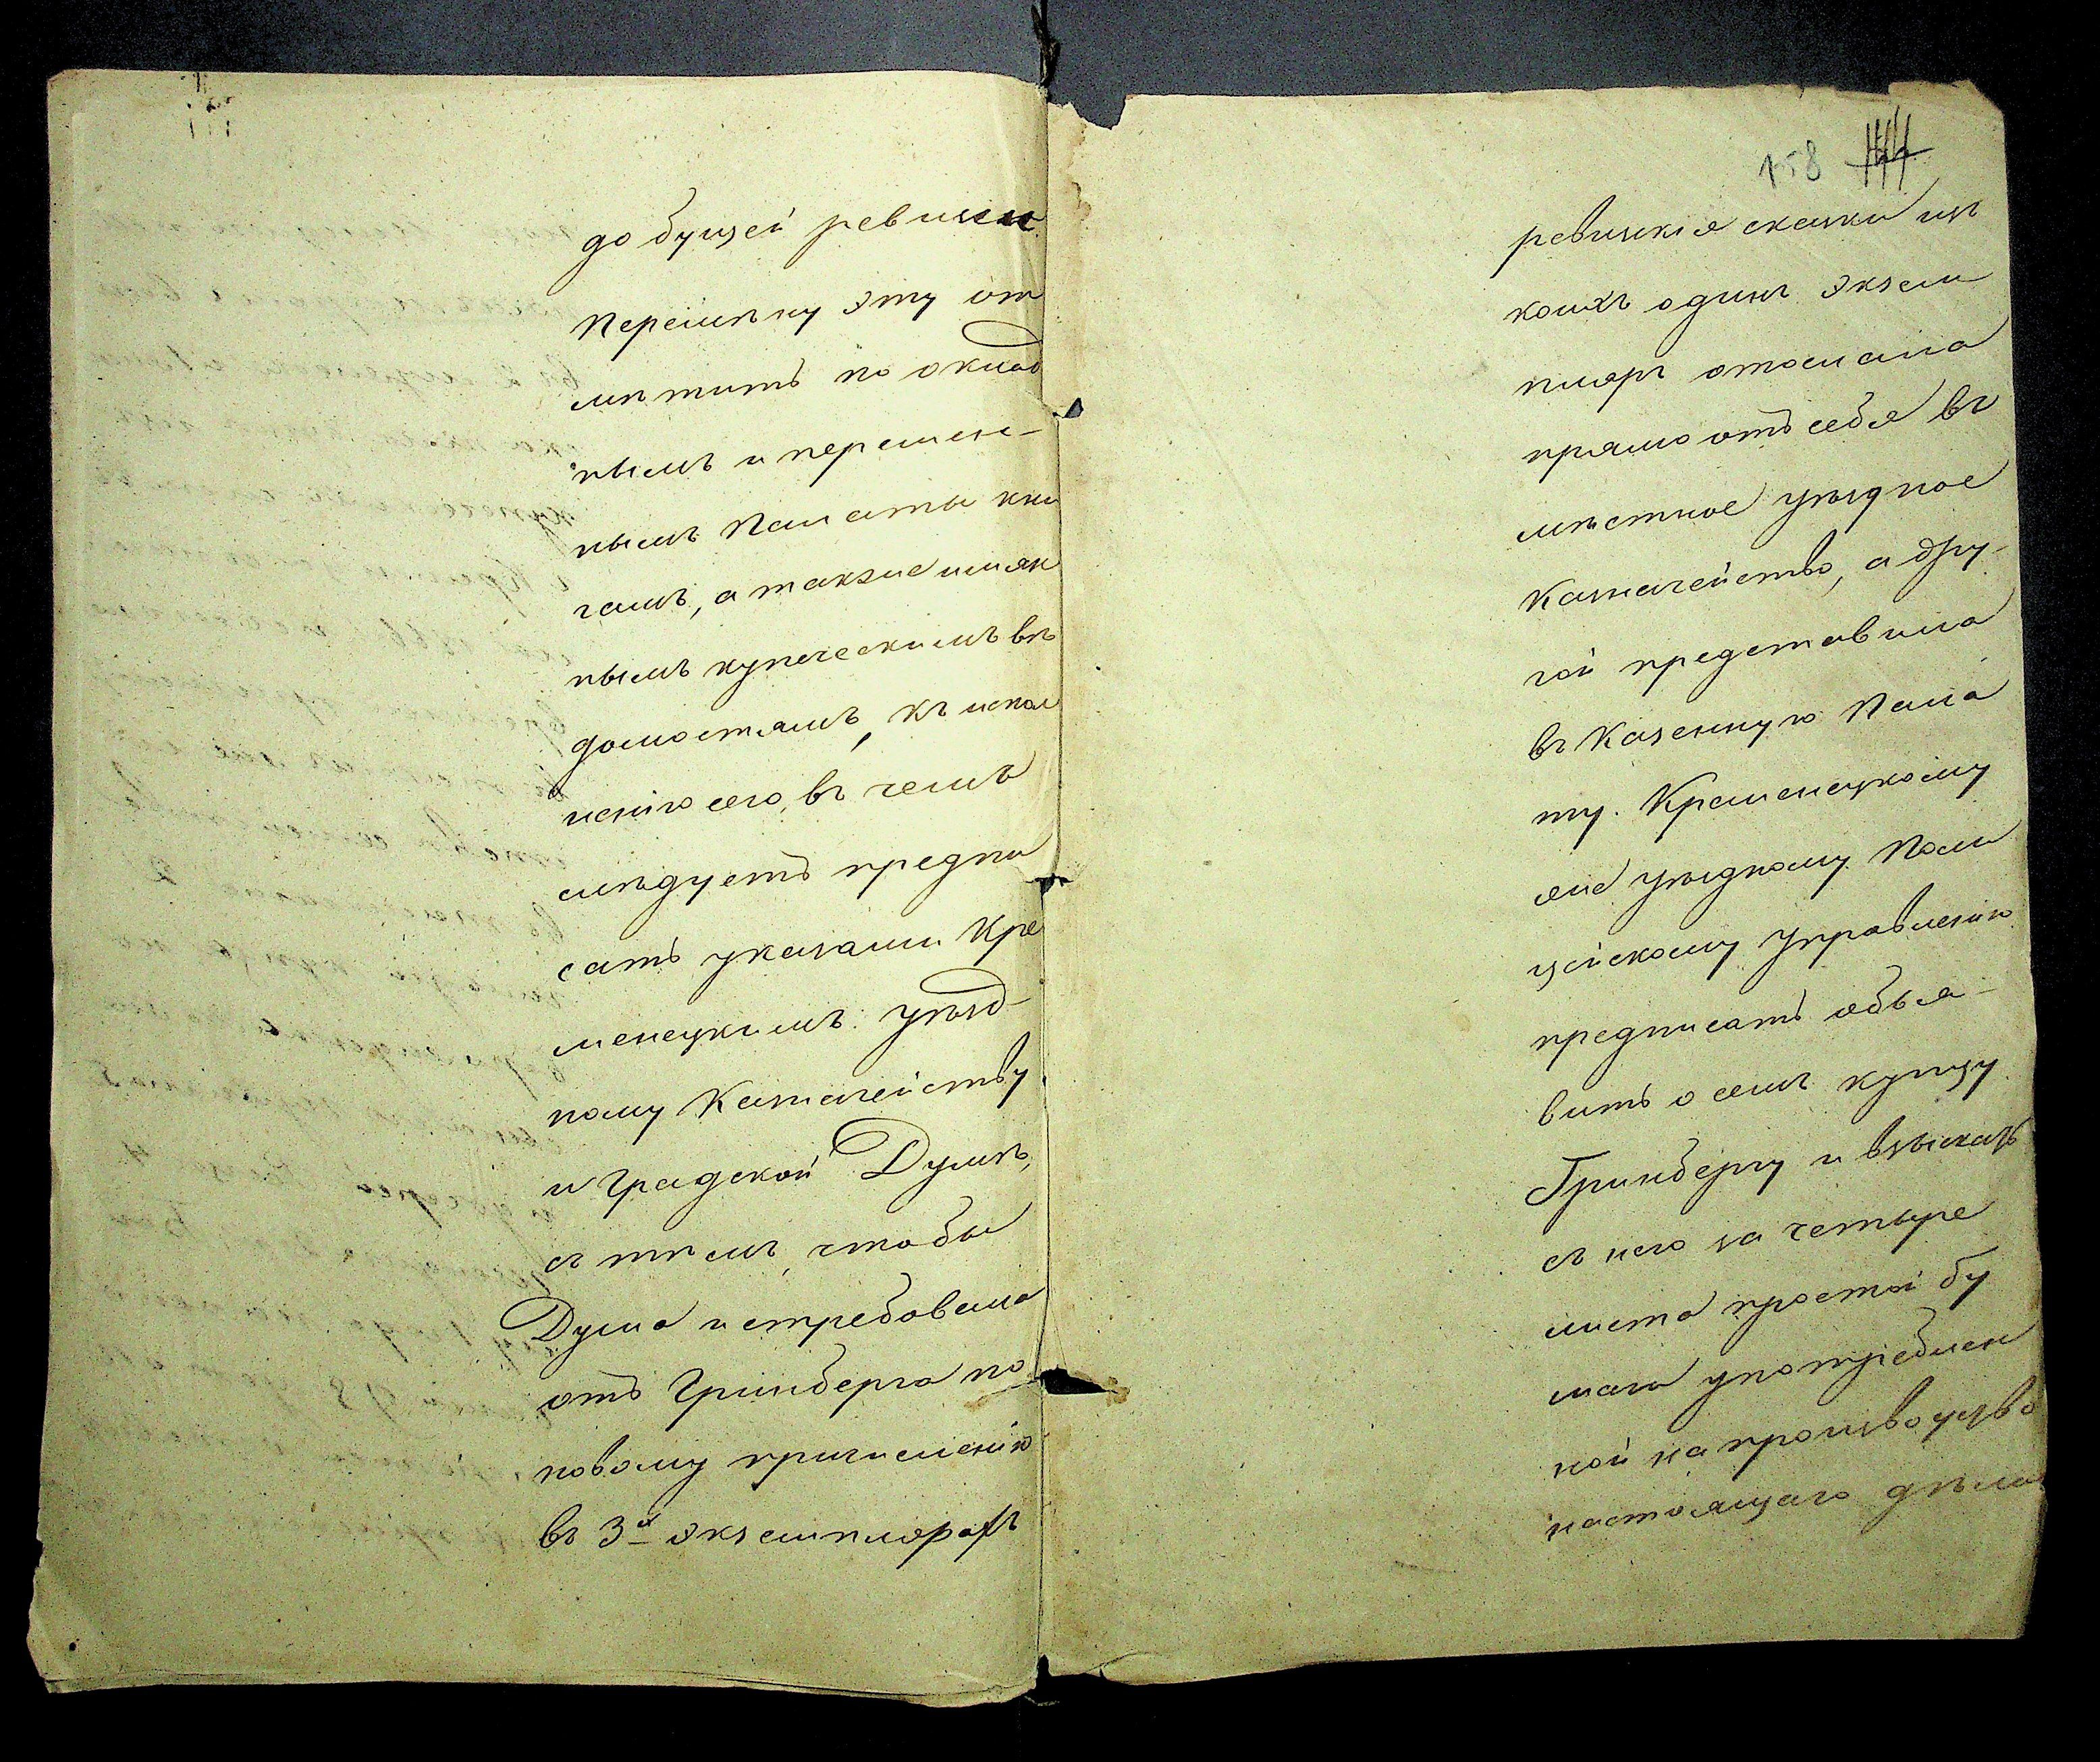 до бущей ревизии
перемѣну эту от
мѣтить по оклад
нымъ и перемен-
нымъ Палаты кни
гамъ, а также имян
нымъ купеческимъ вѣ
домостямъ, къ испол
ненію сего, въ чемъ
слѣдуетъ предпи
сать указами Кре
менецкимъ Уѣзд-
ному Казначейству
и Градской Думѣ,
съ тѣмъ, чтобы
Дума истребовала
отъ Гринберга по
новому причисленію
въ 3х экземплярахъ
158
ревизкія сказки изъ
коихъ одинъ экзем
пляръ отослала
прямо отъ себя въ
мѣстное Уѣздное
Казначейство, а дру-
гой представила
въ Казенную Пала
ту. Кременецкому
же Уѣздному Поли
цейскому Управленію
предписать объя-
вить о семъ купцу
Гринбергу и взыскать
съ него за четыре
листа простой бу
маги употреблен
ной на производство
настоящаго дѣла